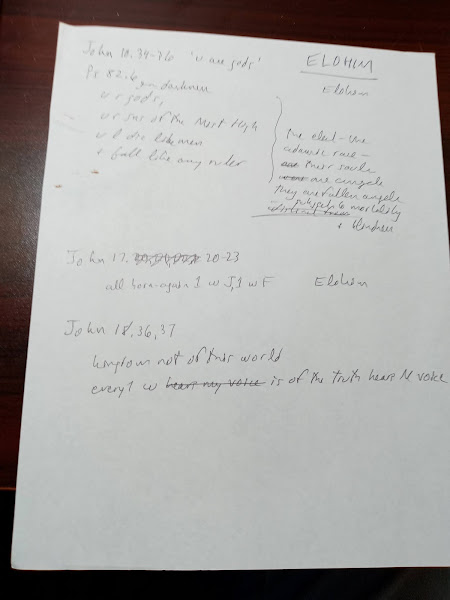 John 10, 34-36 'u are gods'
ELOHIM
Ps 82:6
in darkness
Elohim
u r gods,
u r sns of the Most High
u l die like men
+ fall like any ruler
The elect - the
adamic race -
their souls
are angels
they are fallen angels
subject to mortality
+ blindness
John 17, 20-23
all born-again 1 w J, 1 w F
Elohim
John 18, 36, 37
kingdom not of this world
every1 w hears my voice is of the truth hears M voice